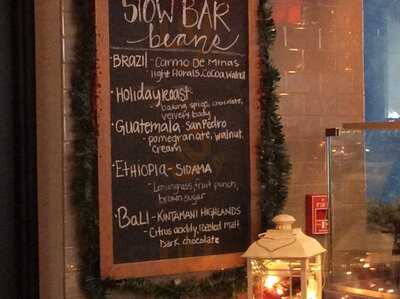 SlOW BAR
beans
· BRAZIL - Carmo De Minas
light florals, Cocoa, walnut
· Holiday roast
- baking spice, chocolate,
velvety body
· Guatemala San Pedro
- pomegranate, walnut,
cream
· ETHIOPIA - SIDAMA
- lemongrass, fruit punch,
brown sugar
· BALI - KINTAMANI HIGHLANDS
- Citrus acidity, malt
Dark chocolate
FIRE